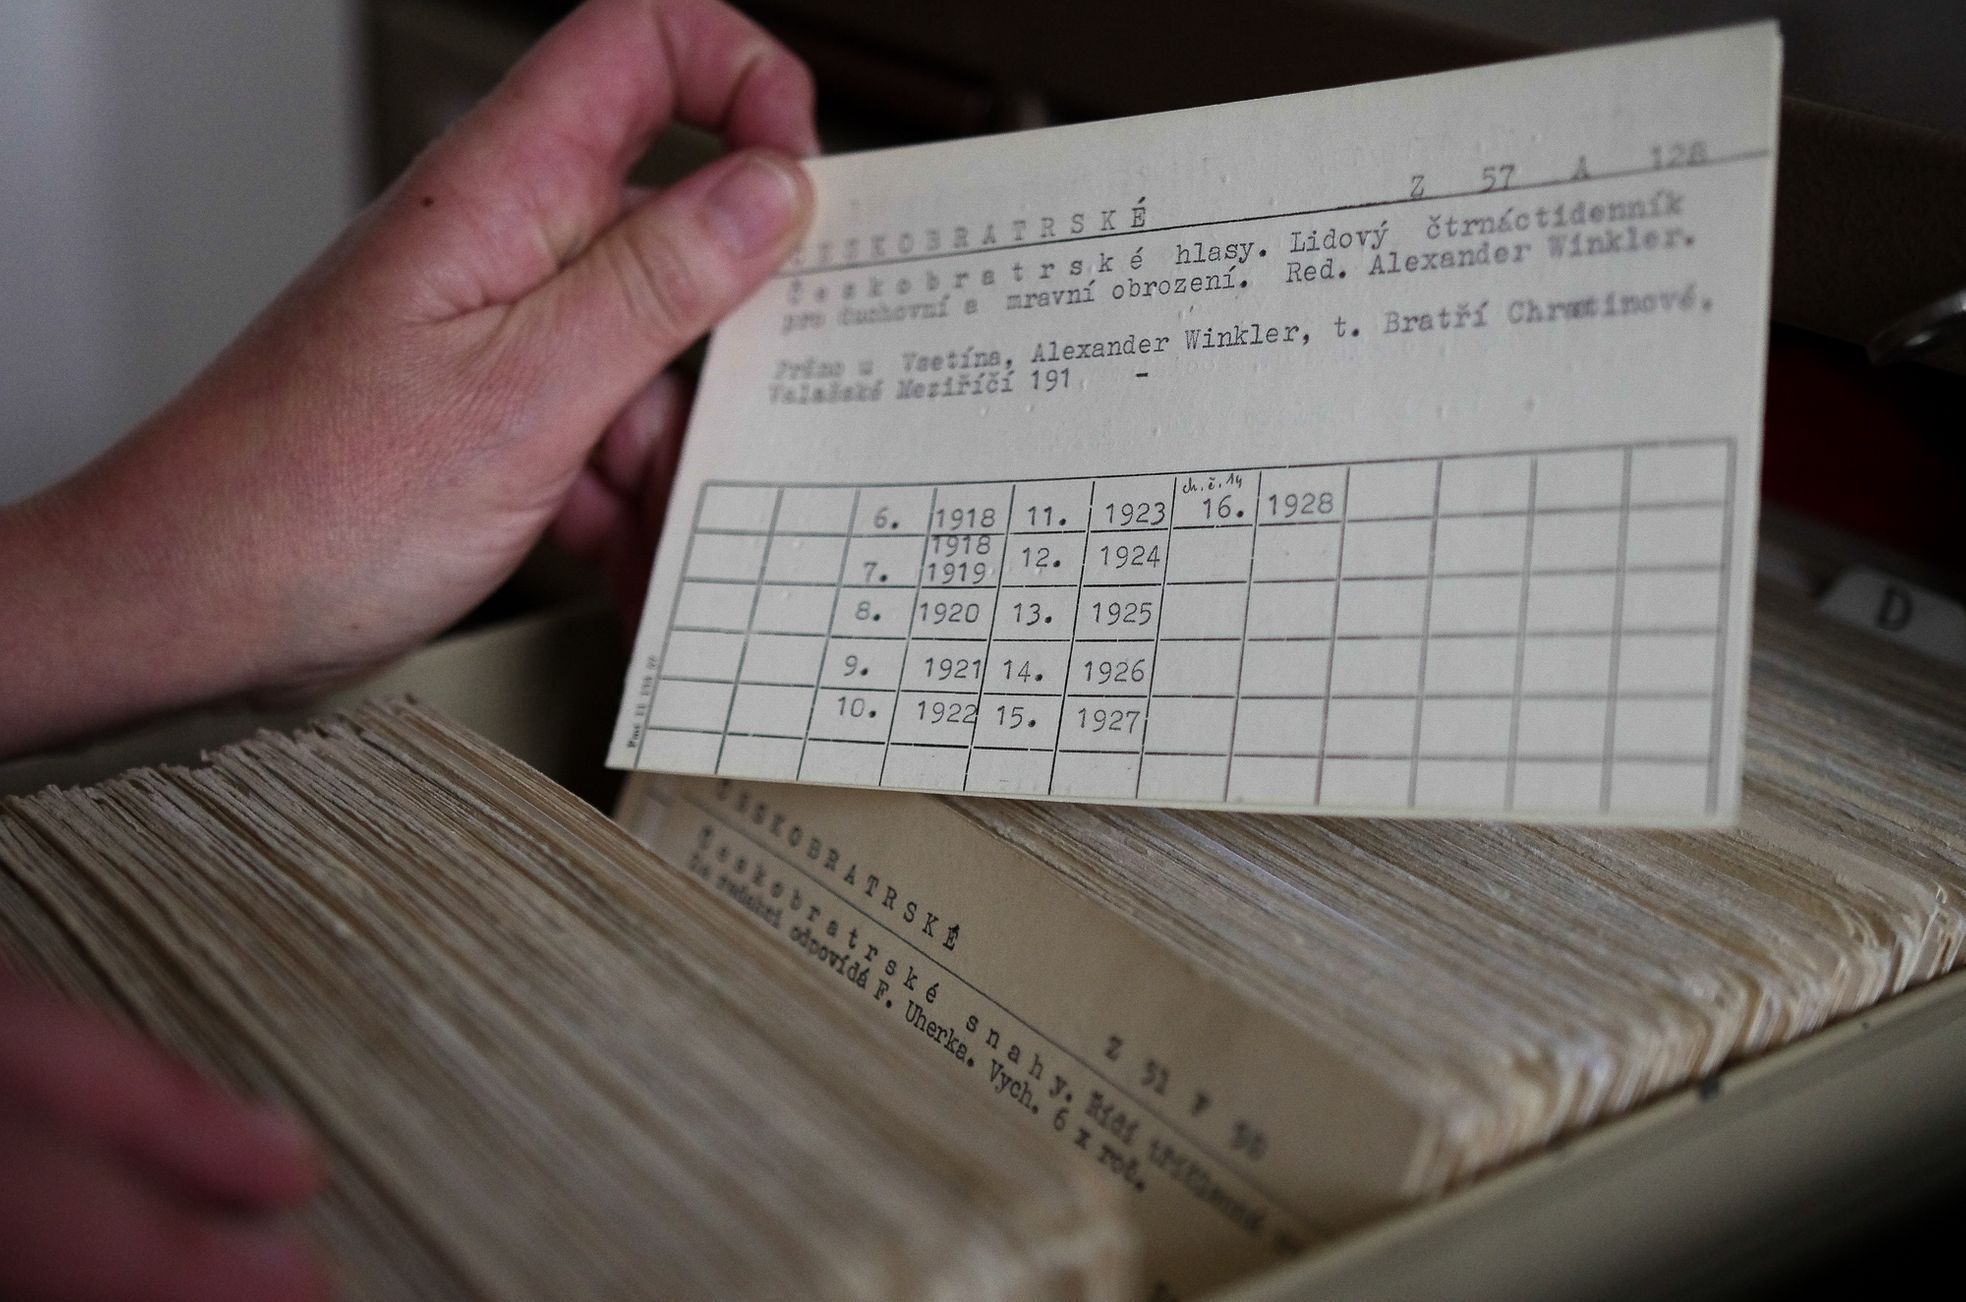 Z 57 A 128
ČESKOBRATRSKÉ
Českobratrské hlasy. Lidový čtrnáctidenník
pro duchovní a mravní obrození. Red. Alexander Winkler.
Vsetína, Alexander Winkler, t. Bratří
Valašské Meziříčí 191 -
ch. č. 14
6. 1918 11. 1923 16. 1928
1918
7. 1919 12. 1924
8. 1920 13. 1925
9. 1921 14. 1926
10. 1922 15. 1927
D
ČESKOBRATRSKÉ
Z 51 F
Českobratrské snahy. Řídí
odpovídá F. Uherka. Vych. 6 x roč.